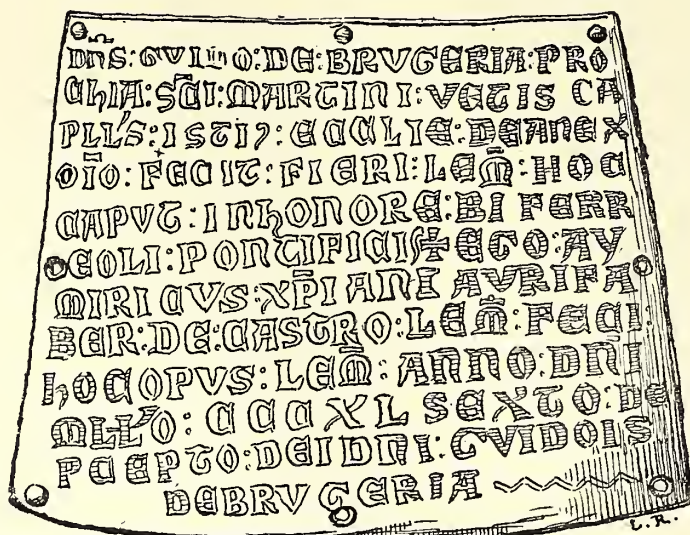 DN̄S: GVILLO: DE: BRVGERIA: PRO
CHIA: SC̄I: MARTINI: VETIS CA
PLL'S: ISTI⁊: ECCLIE: DEANEX
OĪO: FECIT: FIERI: LEM̄: HOC
CAPVT: INHONORE: BI FERR
EOLI: PONTIFICIS ✠ EGO: AY
MIRICVS: XP̄IANI AVRIFA
BER: DE: CASTRO: LEM̄: FECI:
HOCOPVS: LEM̄: ANNO: DN̄I
MLL'O: CCCXL SEXTO: DE
PCEPTO: DEI DNI: GVIDOIS
DEBRVGERIA
L. R.